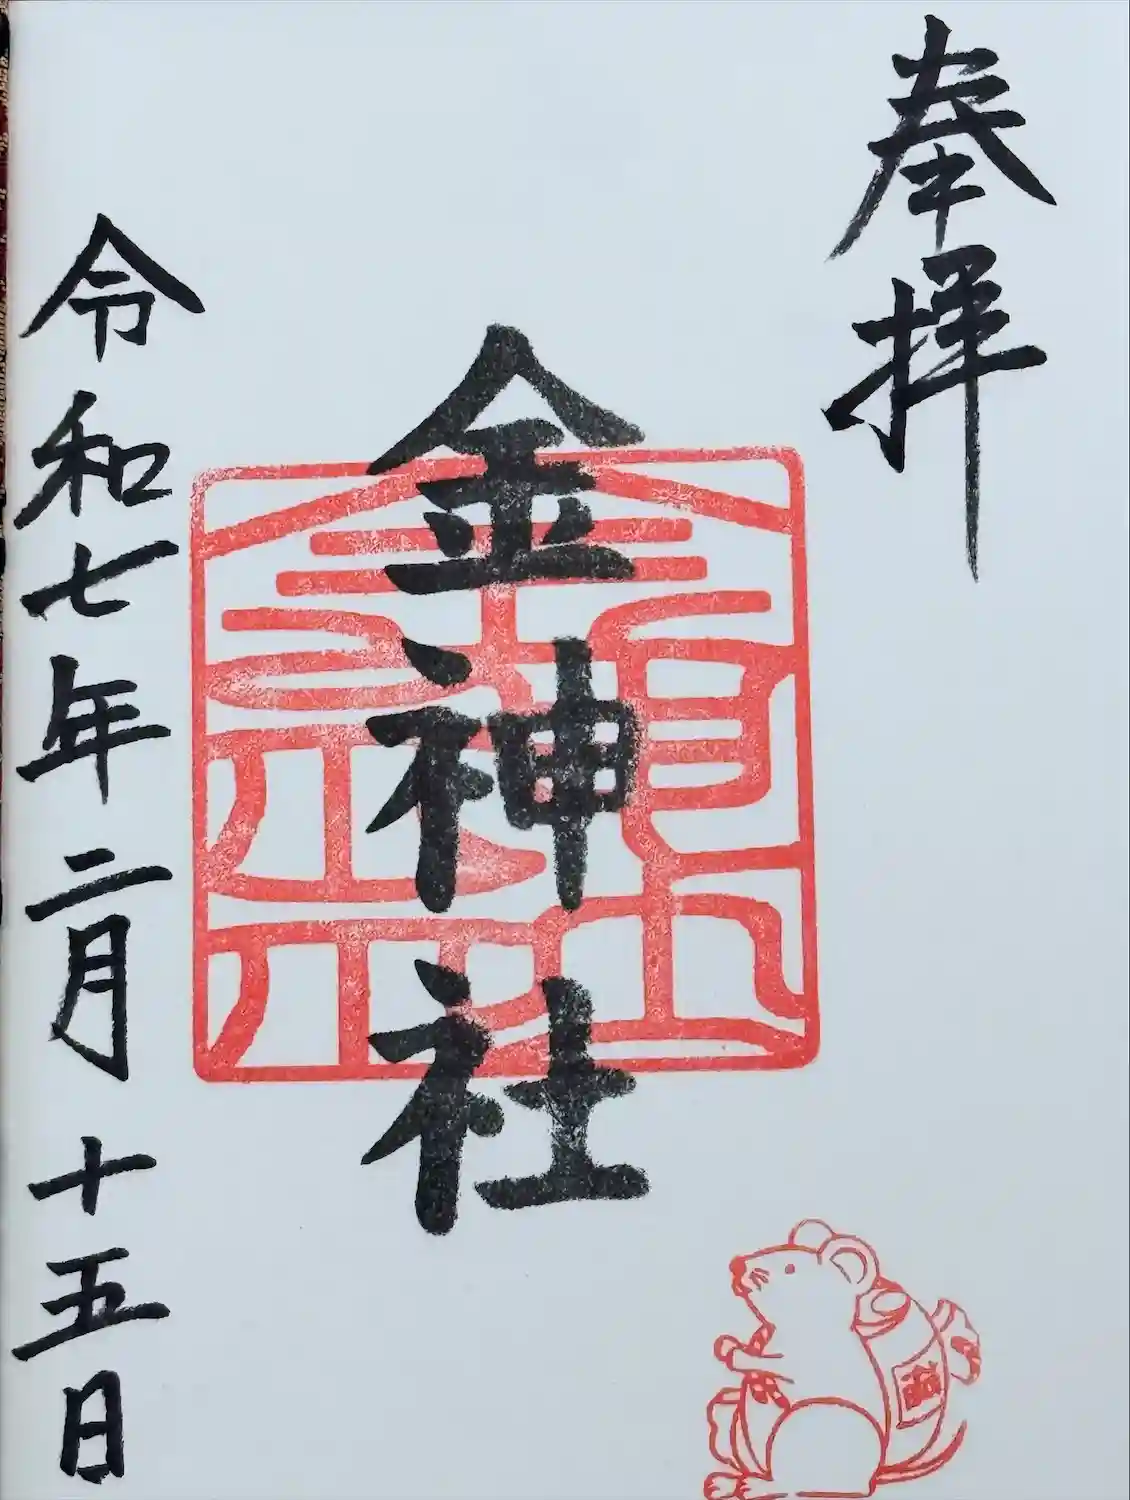 奉拝
金神社
令和七年二月十五日
福